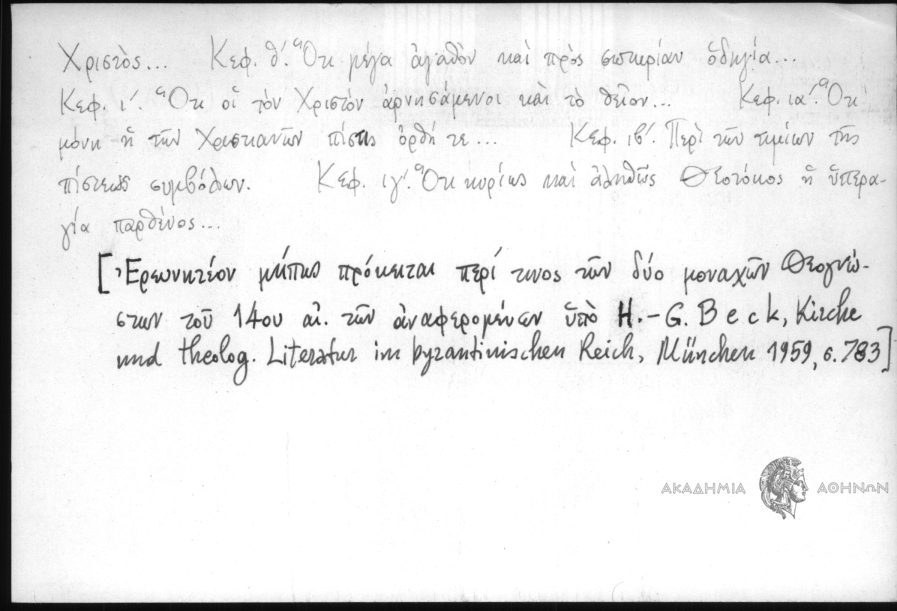 Χριστὸς... Κεφ. θ΄. Ὅτι μέγα ἀγαθὸν καὶ πρὸς σωτηρίαν ὁδηγία...
Κεφ. ι΄. Ὅτι οἱ τὸν Χριστὸν ἀρνησάμενοι καὶ τὸ θεῖον... Κεφ. ια΄. Ὅτι
μόνη ἡ τῶν Χριστιανῶν πίστις ὀρθή τε... Κεφ. ιβ΄. Περὶ τῶν τιμίων τῆς
πίστεως συμβόλων. Κεφ. ιγ΄. Ὅτι κυρίως καὶ ἀληθῶς Θεοτόκος ἡ ὑπερα-
γία παρθένος...
[Ἐρευνητέον μήπως πρόκειται περί τινος τῶν δύο μοναχῶν Θεογνώ-
στων τοῦ 14ου αἰ. τῶν ἀναφερομένων ὑπὸ H.-G. Beck, Kirche
und theolog. Literatur im byzantinischen Reich, München 1959, σ. 783]
ΑΚΑΔΗΜΙΑ ΑΘΗΝΩΝ